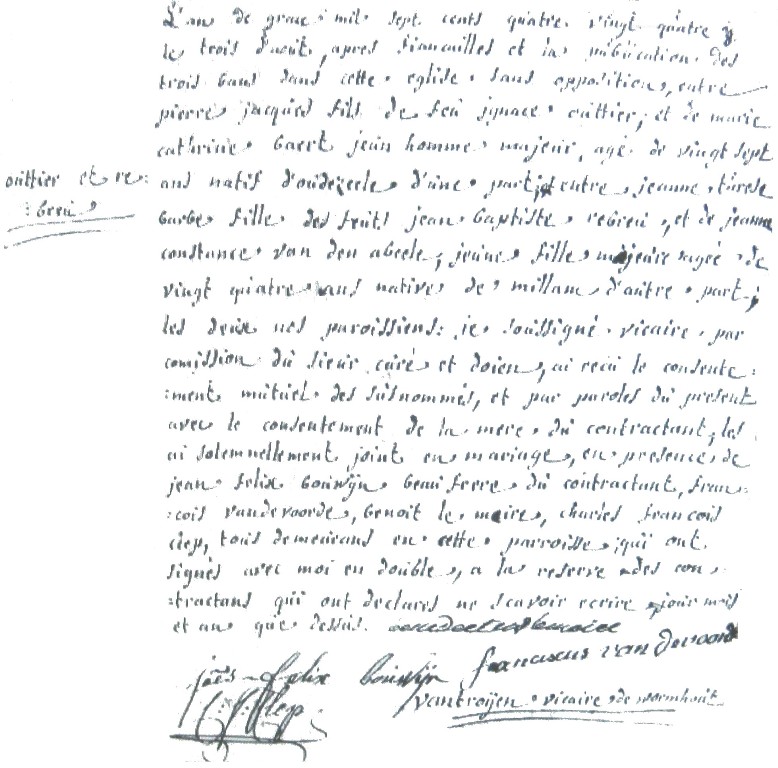 L'an de grace mil sept cents quatre vingt quatre
le trois d'aout, apres fiancailles et la publication des
trois bans dans cette eglise sans opposition, entre
pierre jacques fils de feu ignace outtier, et de marie
cathrine baert jeun homme majeur, agé de vingt sept
outtier et re:
:breu
ans natif d'oudezeele d'une part, et entre jeanne t'irese
barbe fille des fruits jean baptiste rebreu, et de jeanne
constance van den abeele, jeune fille majeure agée de
vingt quatre ans native de millam d'autre part;
les deux nos paroissiens: je soussigné vicaire par
comission du sieur curé et doien, ai recu le consente:
:ment mutuel des susnommés, et par paroles du present
avec le consentement de la mere du contractant, les
ai solemnellement joint en mariage, en presence de
jean felix bouwijn beau frere du contractant, fran:
:cois vandevoorde, benoit le maire, charles francois
clep, tous demeurans en cette parroisse, qui ont
signés avec moi en double, a la reserve des con:
:tractans qui ont declarés ne scavoir ecrire jour mois
et an que dessus. benedictus lemaire
joēs felix bouwijn franciscus van devoorde
C: f: Clep vantroijen vicaire de wormhout